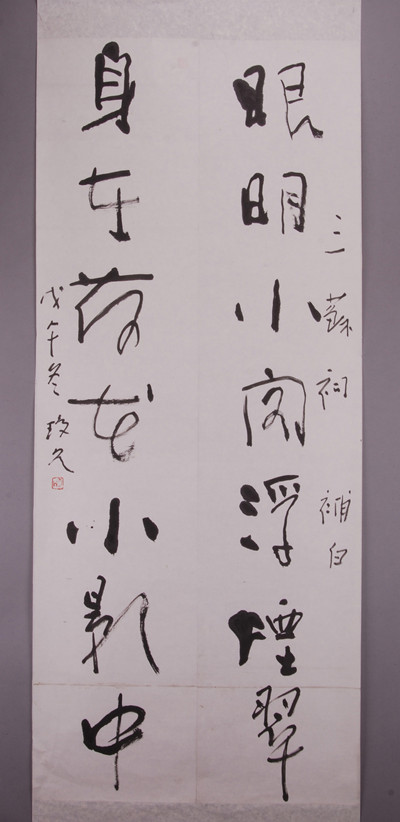 三蘇祠 補白
眼明小閣浮煙翠
身在荷花小影中
戊午冬